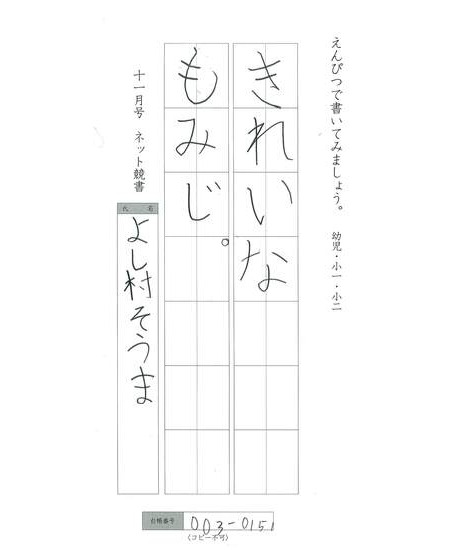 えんぴつで書いてみましょう。 幼児・小一・小二
きれいな
もみじ。
十一月号 ネット競書
氏名
よし村そうま
台帳番号 003-0151
(コピー不可)